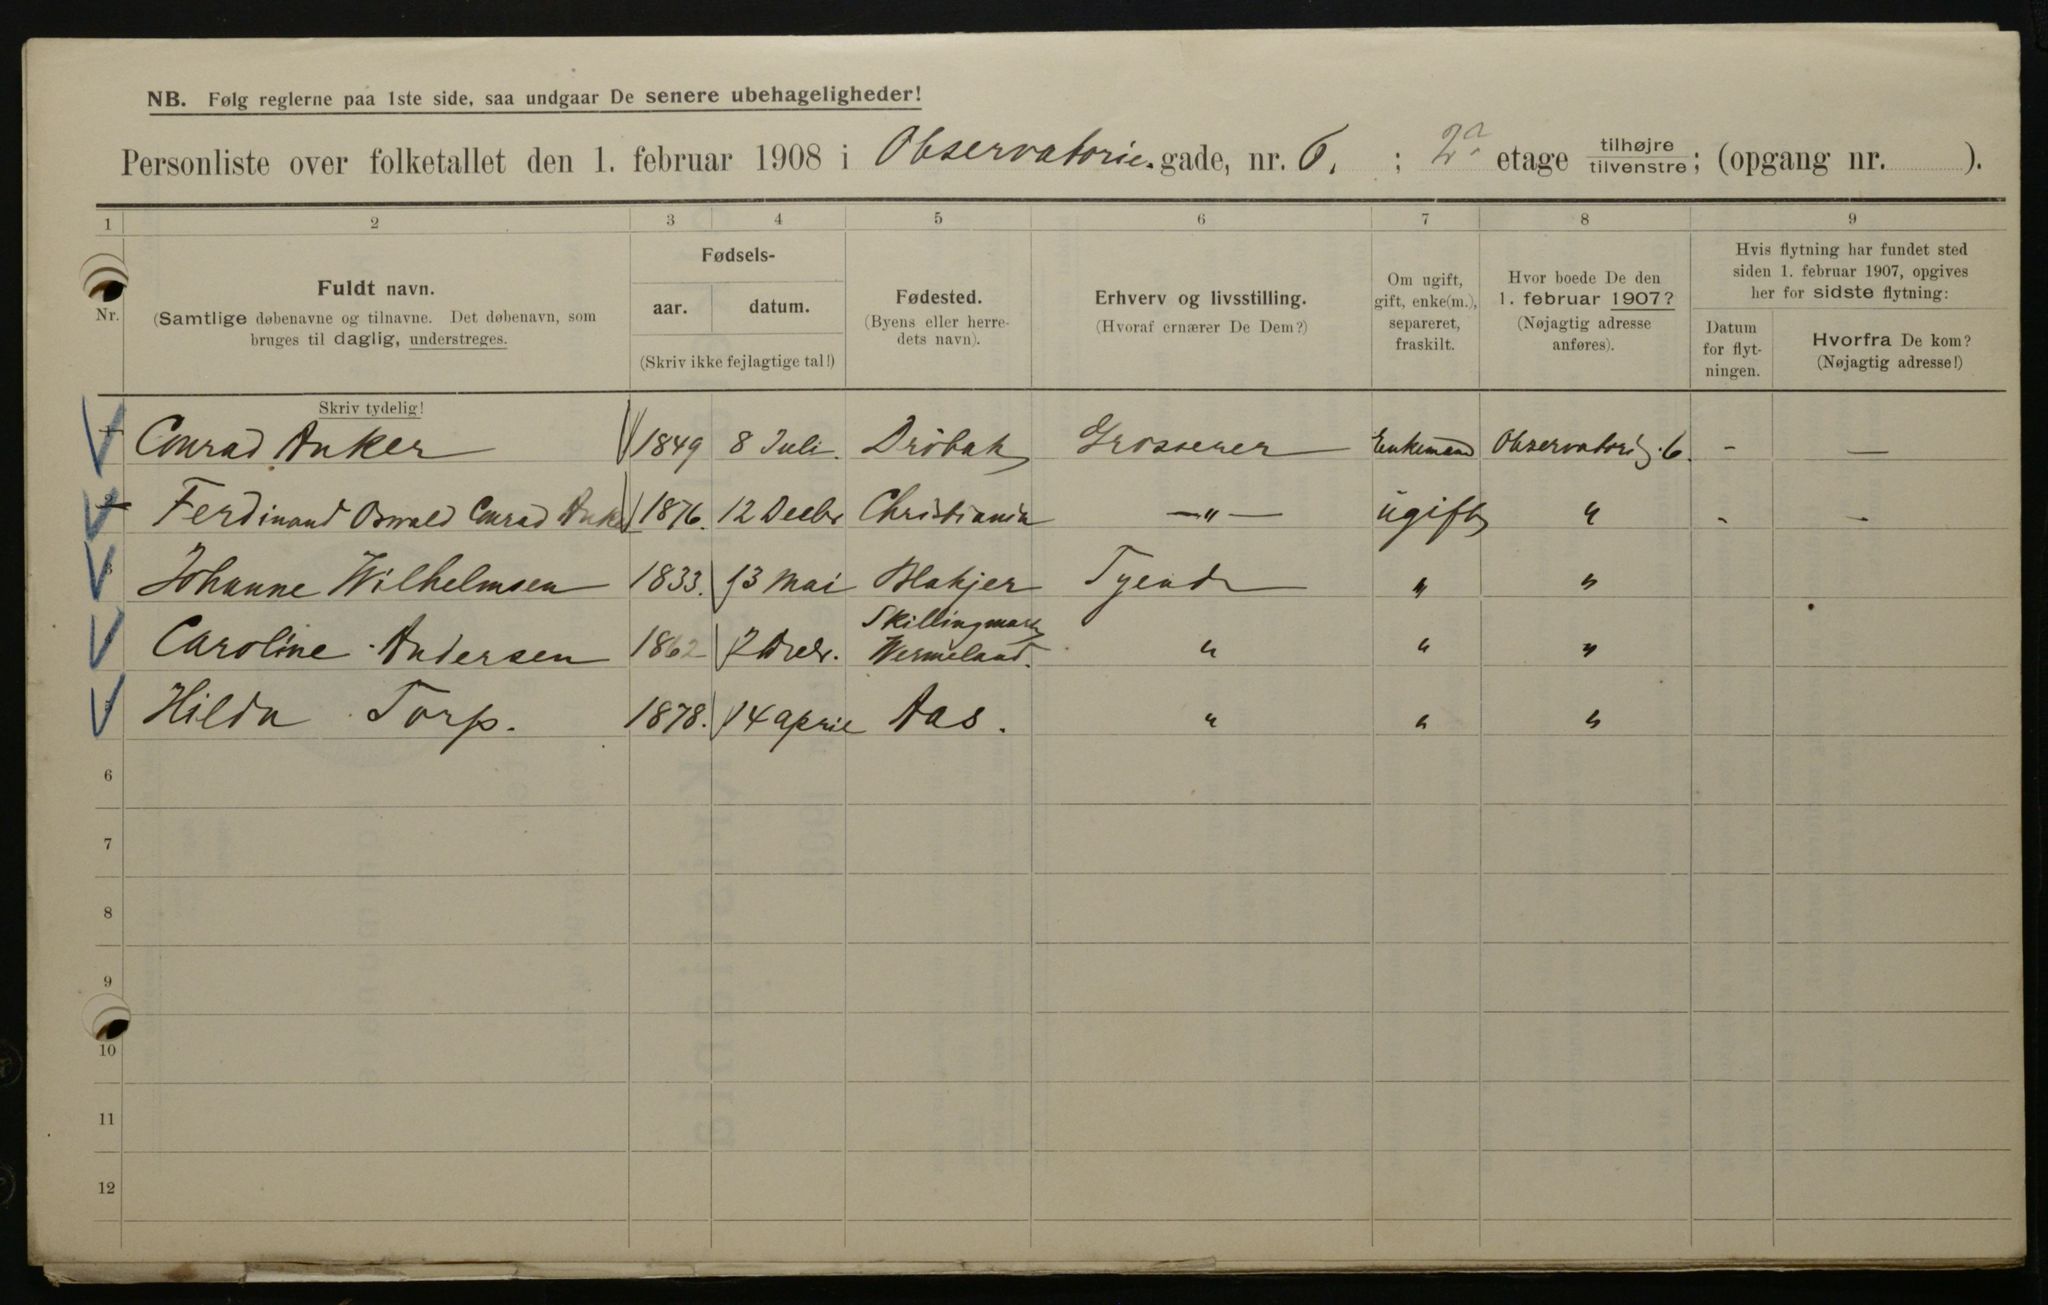 NB. Følg reglerne paa 1ste side, saa undgaar De senere ubehageligheder!
Personliste over folketallet den 1. februar 1908 i Observatorie. gade, nr. 6. ; 2 etage tilhøjre tilvenstre; (opgang nr. ).
1 2 3 4 5 6 7 8 9
Nr.
Fuldt navn.
(Samtlige døbenavne og tilnavne. Det døbenavn, som
bruges til daglig, understreges.
Fødsels-
aar. datum.
(Skriv ikke fejlagtige tal!)
Fødested.
(Byens eller herre-
dets navn).
Erhverv og livsstilling.
(Hvoraf ernærer De Dem?)
Om ugift,
gift, enke(m.),
separeret,
fraskilt.
Hvor boede De den
1. februar 1907?
(Nøjagtig adresse
anføres).
Hvis flytning har fundet sted
siden 1. februar 1907, opgives
her for sidste flytning:
Datum
for flyt-
ningen.
Hvorfra De kom?
(Nøjagtig adresse!)
Skriv tydelig!
Conrad Anker 1849 8 Juli. Dröbak Grosserer Enkemand Observatorieg. 6. - —
Ferdinand Oswald Conrad Anker 1876. 12 Decbr Christiania —„— ugift „ - —
3 Johanne Wilhelmsen 1833. 13 Mai Blakjer Tyende „ „
Caroline Andersen 1862 Skillingmark
Wermeland. „ „ „
Hilda Torp. 1878. 14 april Aas. „ „ „
6
7
8
9
10
11
12